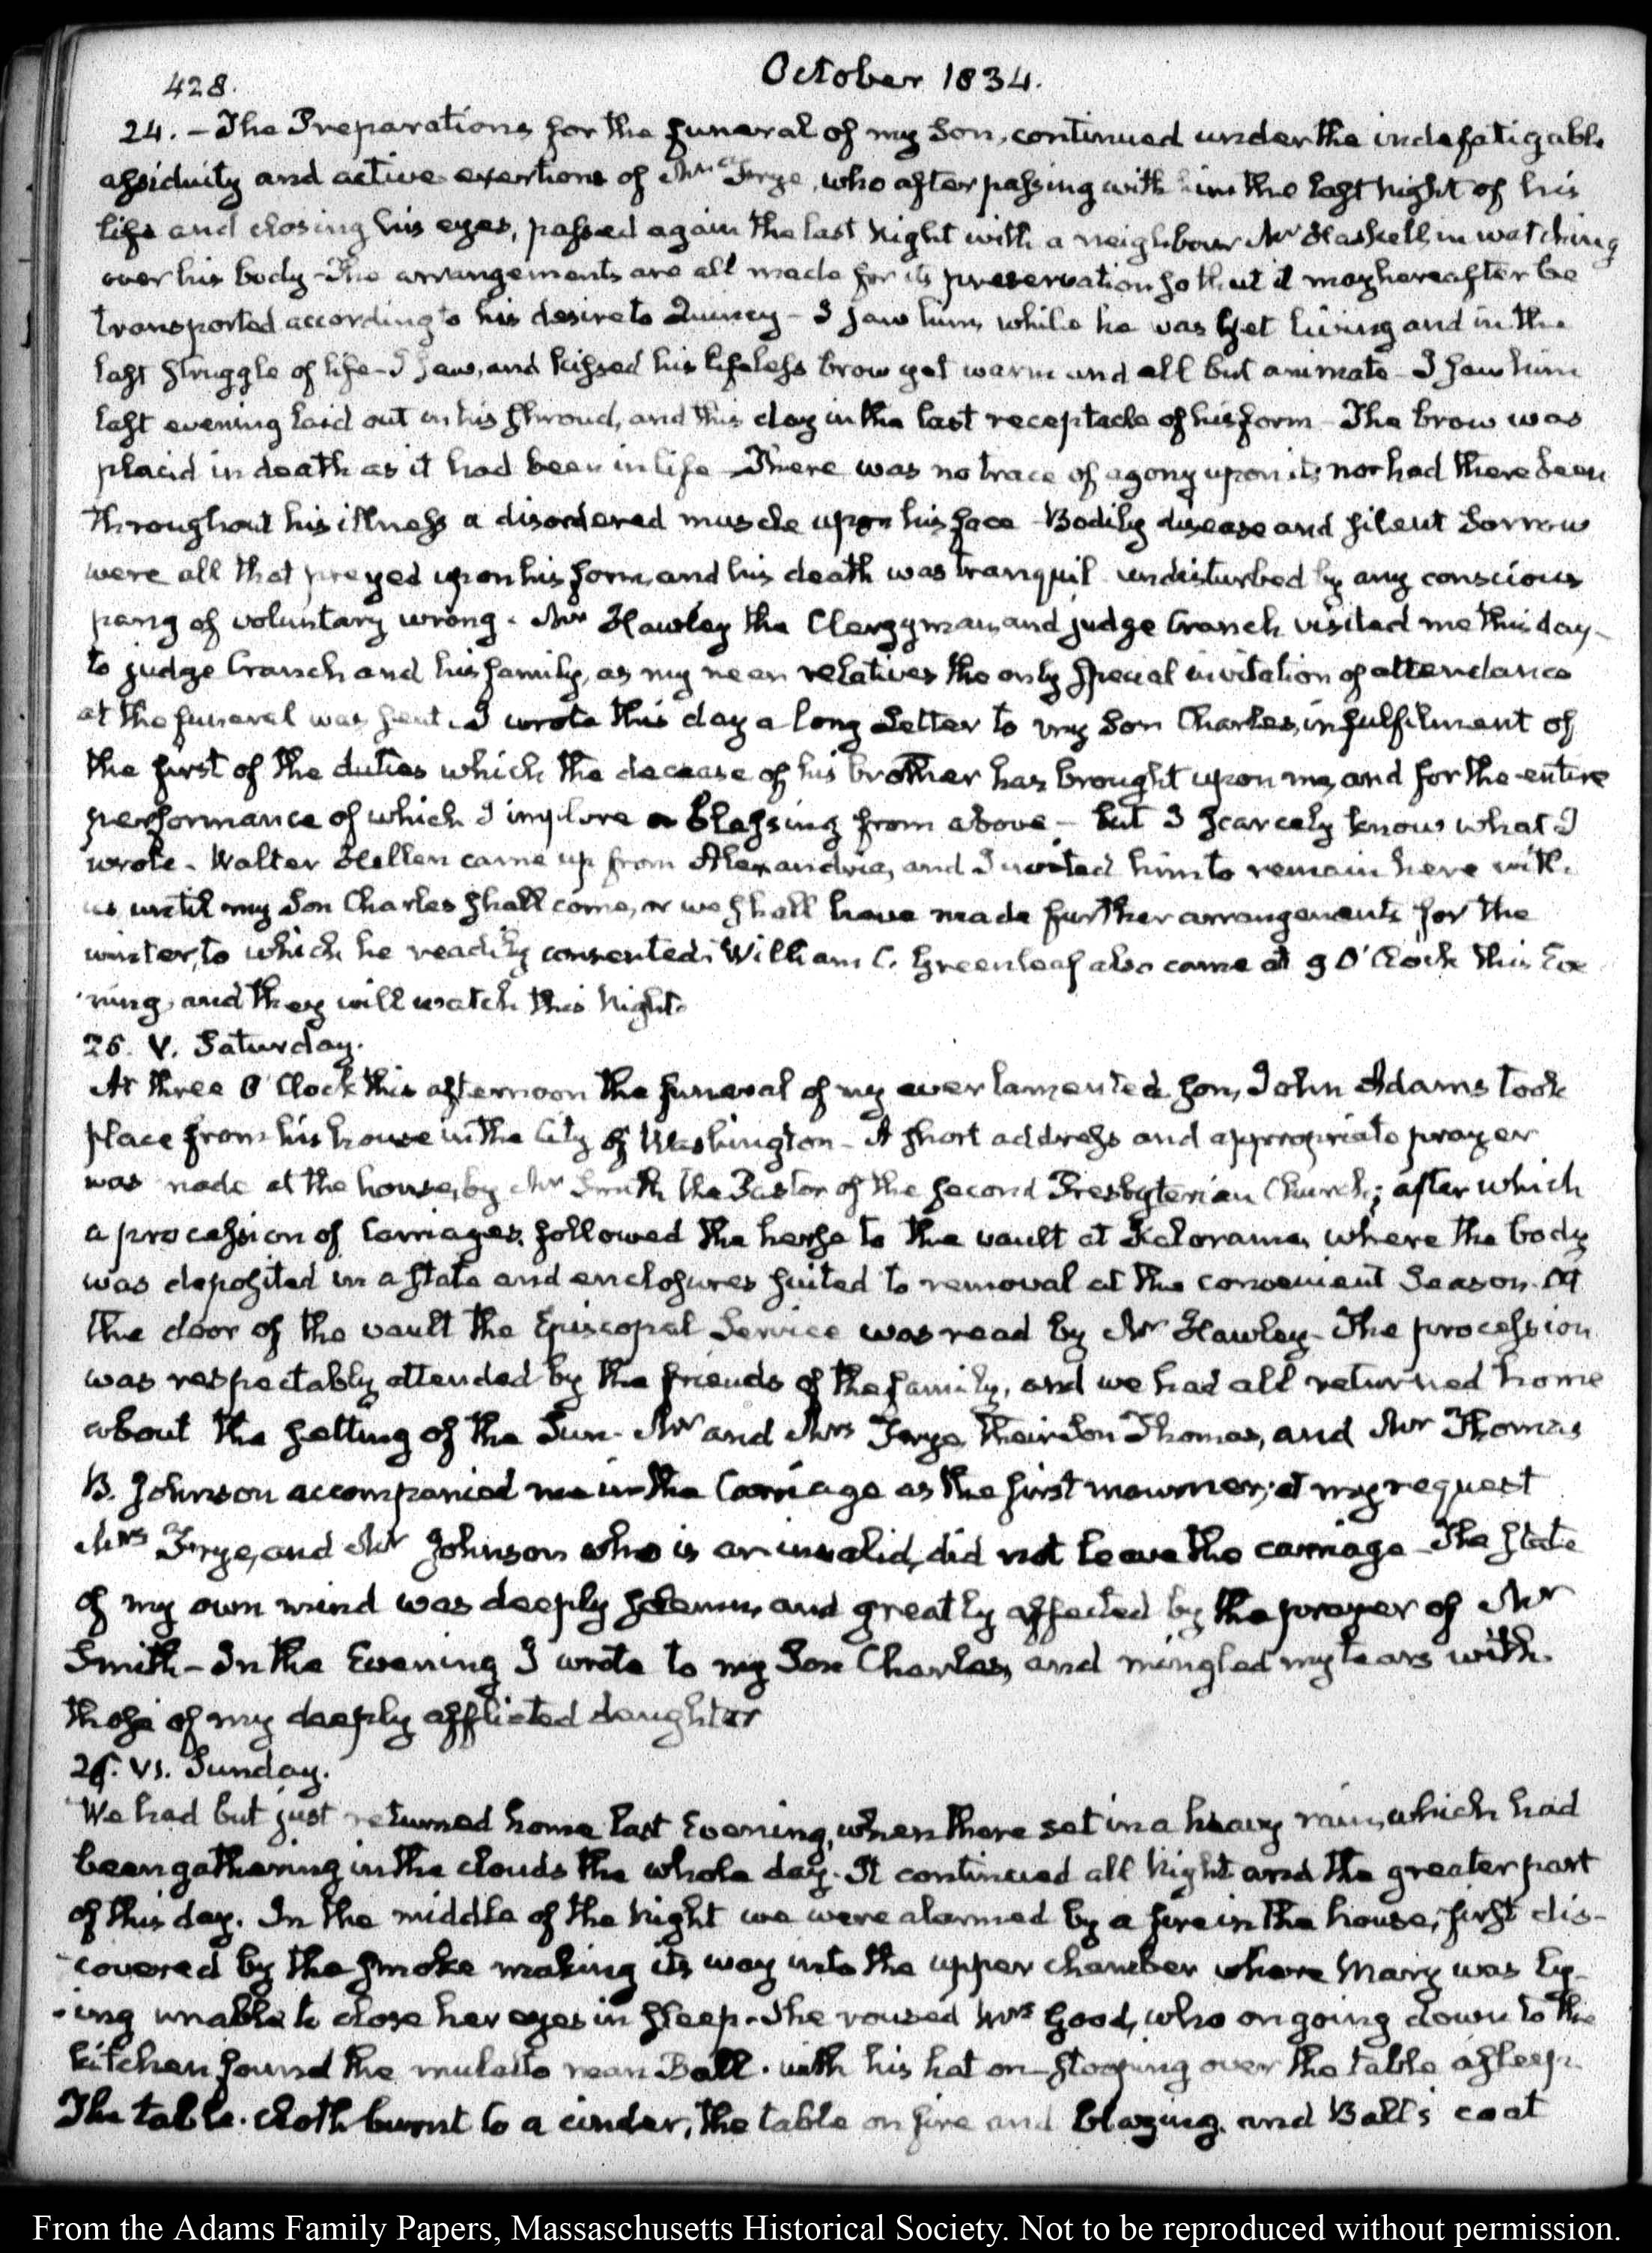 428.
October 1834.
24. – The Preparations for the funeral of my Son, continued under the indefatigable
assiduity and active exertions of Mr Frye, who after passing with him the last Night of his
life and closing his eyes, passed again the last Night with a neighbour Mr Haskell in watching
over his body – The arrangements are all made for its preservation so that it may hereafter be
transported according to his desire to Quincy – I saw him while he was yet living and in the
last struggle of life – I saw, and kissed his lifeless brow yet warm and all but animate – I saw him
last evening laid out in his shroud, and this day in the last receptacle of his form – The brow was
placid in death as it had been in life – There was no trace of agony upon it, nor had there been
throughout his illness a disordered muscle upon his face – Bodily disease and silent Sorrow
were all that preyed upon his form, and his death was tranquil undisturbed by any conscious
pang of voluntary wrong. Mr Hawley the Clergyman, and judge Cranch visited me this day –
to judge Cranch and his family, as my near relatives the only special invitation of attendance
at the funeral was sent. I wrote this day a long Letter to my Son Charles, in fulfilment of
the first of the duties which the decease of his brother has brought upon me, and for the entire
performance of which I implore a blessing from above – but I scarcely know what I
wrote – Walter Hellen came up from Alexandria, and I invited him to remain here with
us until my Son Charles shall come, or we shall have made further arrangements for the
winter, to which he readily consented. William C. Greenleaf also came at 9 O'Clock this Eve
ning, and they will watch this Night.
25. V. Saturday.
At three O'Clock this afternoon the funeral of my ever lamented son, John Adams took
place from his house in the City of Washington – A short address and appropriate prayer
was made at the house, by Mr Smith the Pastor of the second Presbyterian Church; after which
a procession of Carriages, followed the herse to the vault at Kalorama, where the body
was deposited in a state and enclosures suited to removal at the convenient Season. At
the door of the vault the Episcopal Service was read by Mr Hawley – The procession
was respectably attended by the friends of the family, and we had all returned home
about the setting of the Sun – Mr and Mrs Frye, their Son Thomas, and Mr Thomas
B. Johnson accompanied me in the Carriage as the first mourner; at my request
Mrs Frye, and Mr Johnson who is an invalid, did not leave the carriage – The state
of my own mind was deeply solemn, and greatly affected by the prayer of Mr
Smith – In the Evening I wrote to my Son Charles, and mingled my tears with
those of my deeply afflicted daughter
26. VI. Sunday.
We had but just returned home last Evening, when there set in a heavy rain, which had
been gathering in the clouds the whole day. It continued all Night and the greater part
of this day. In the middle of the Night we were alarmed by a fire in the house, first dis-
covered by the smoke making its way into the upper chamber where Mary was ly-
ing unable to close her eyes in sleep. She roused Mrs Good, who on going down to the
kitchen found the mulatto man Ball with his hat on – stooping over the table asleep.
The table-cloth burnt to a cinder, the table on fire and blazing, and Ball's coat
From the Adams Family Papers, Massaschusetts Historical Society. Not to be reproduced without permission.